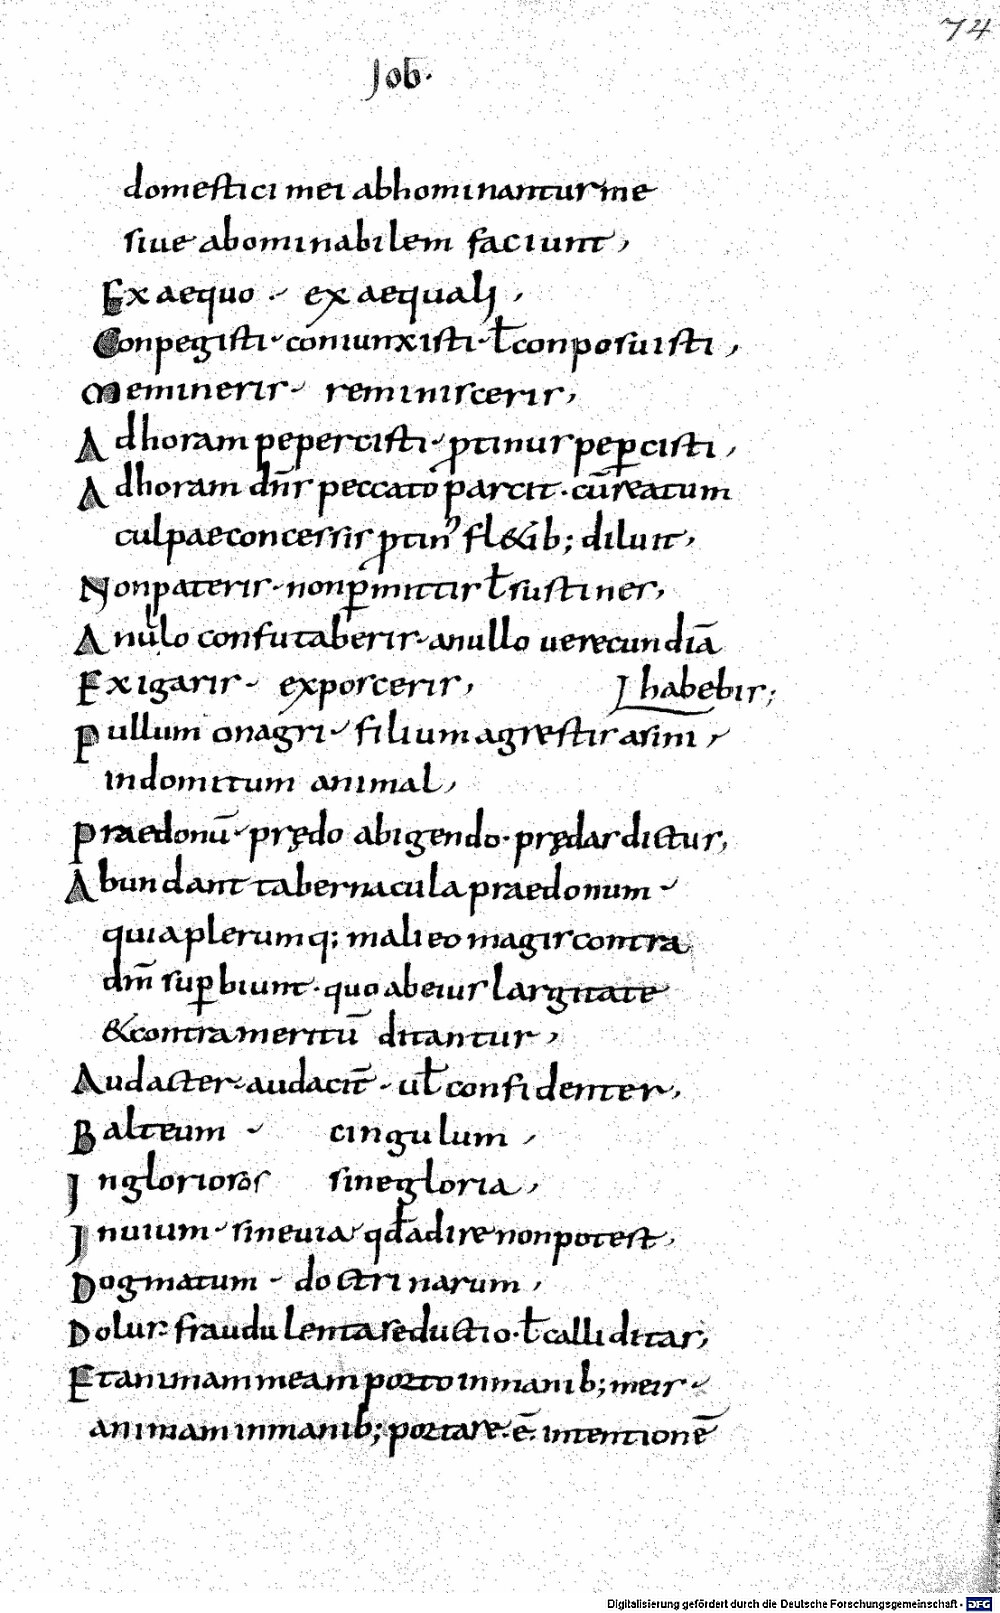 74
Job·
domestici mei abhominantur me
siue abominabilem faciunt,
Ex aequo · ex aequali,
Conpegisti · coniunxisti · ł conposuisti,
Memineris · reminisceris,
Ad horam pepercisti · ꝓtinus peꝑcisti,
Ad horam dn̄s peccato parcit · cū reatum
culpae concessis ꝓtin᾽ fl&ib; diluit,
Non pateris · non ꝑmittis ł sustines,
A nullo confutaberis · a nullo uerecundiā
Exigaris · exposceris, habebis;
Pullum onagri · filium agrestis asini,
indomitum animal,
Praedonū · prędo abigendo · prędas dictus,
Abundant tabernacula praedonum ·
quia plerumq; mali eo magis contra
dm̄ suꝑbiunt · quo ab eius largitate
& contra meritū ditantur,
Audacter · audacit̄ · uł confidenter,
Balteum · cingulum,
Inglorios sine gloria,
Inuium · sine uia qđ adire non potest,
Dogmatum · doctrinarum,
Dolus · fraudulenta seductio · ł calliditas,
Et animam meam porto in manib; meis ·
animam in manib; portare · ē · intentionē
Digitalisierung gefördert durch die Deutsche Forschungsgemeinschaft · DFG